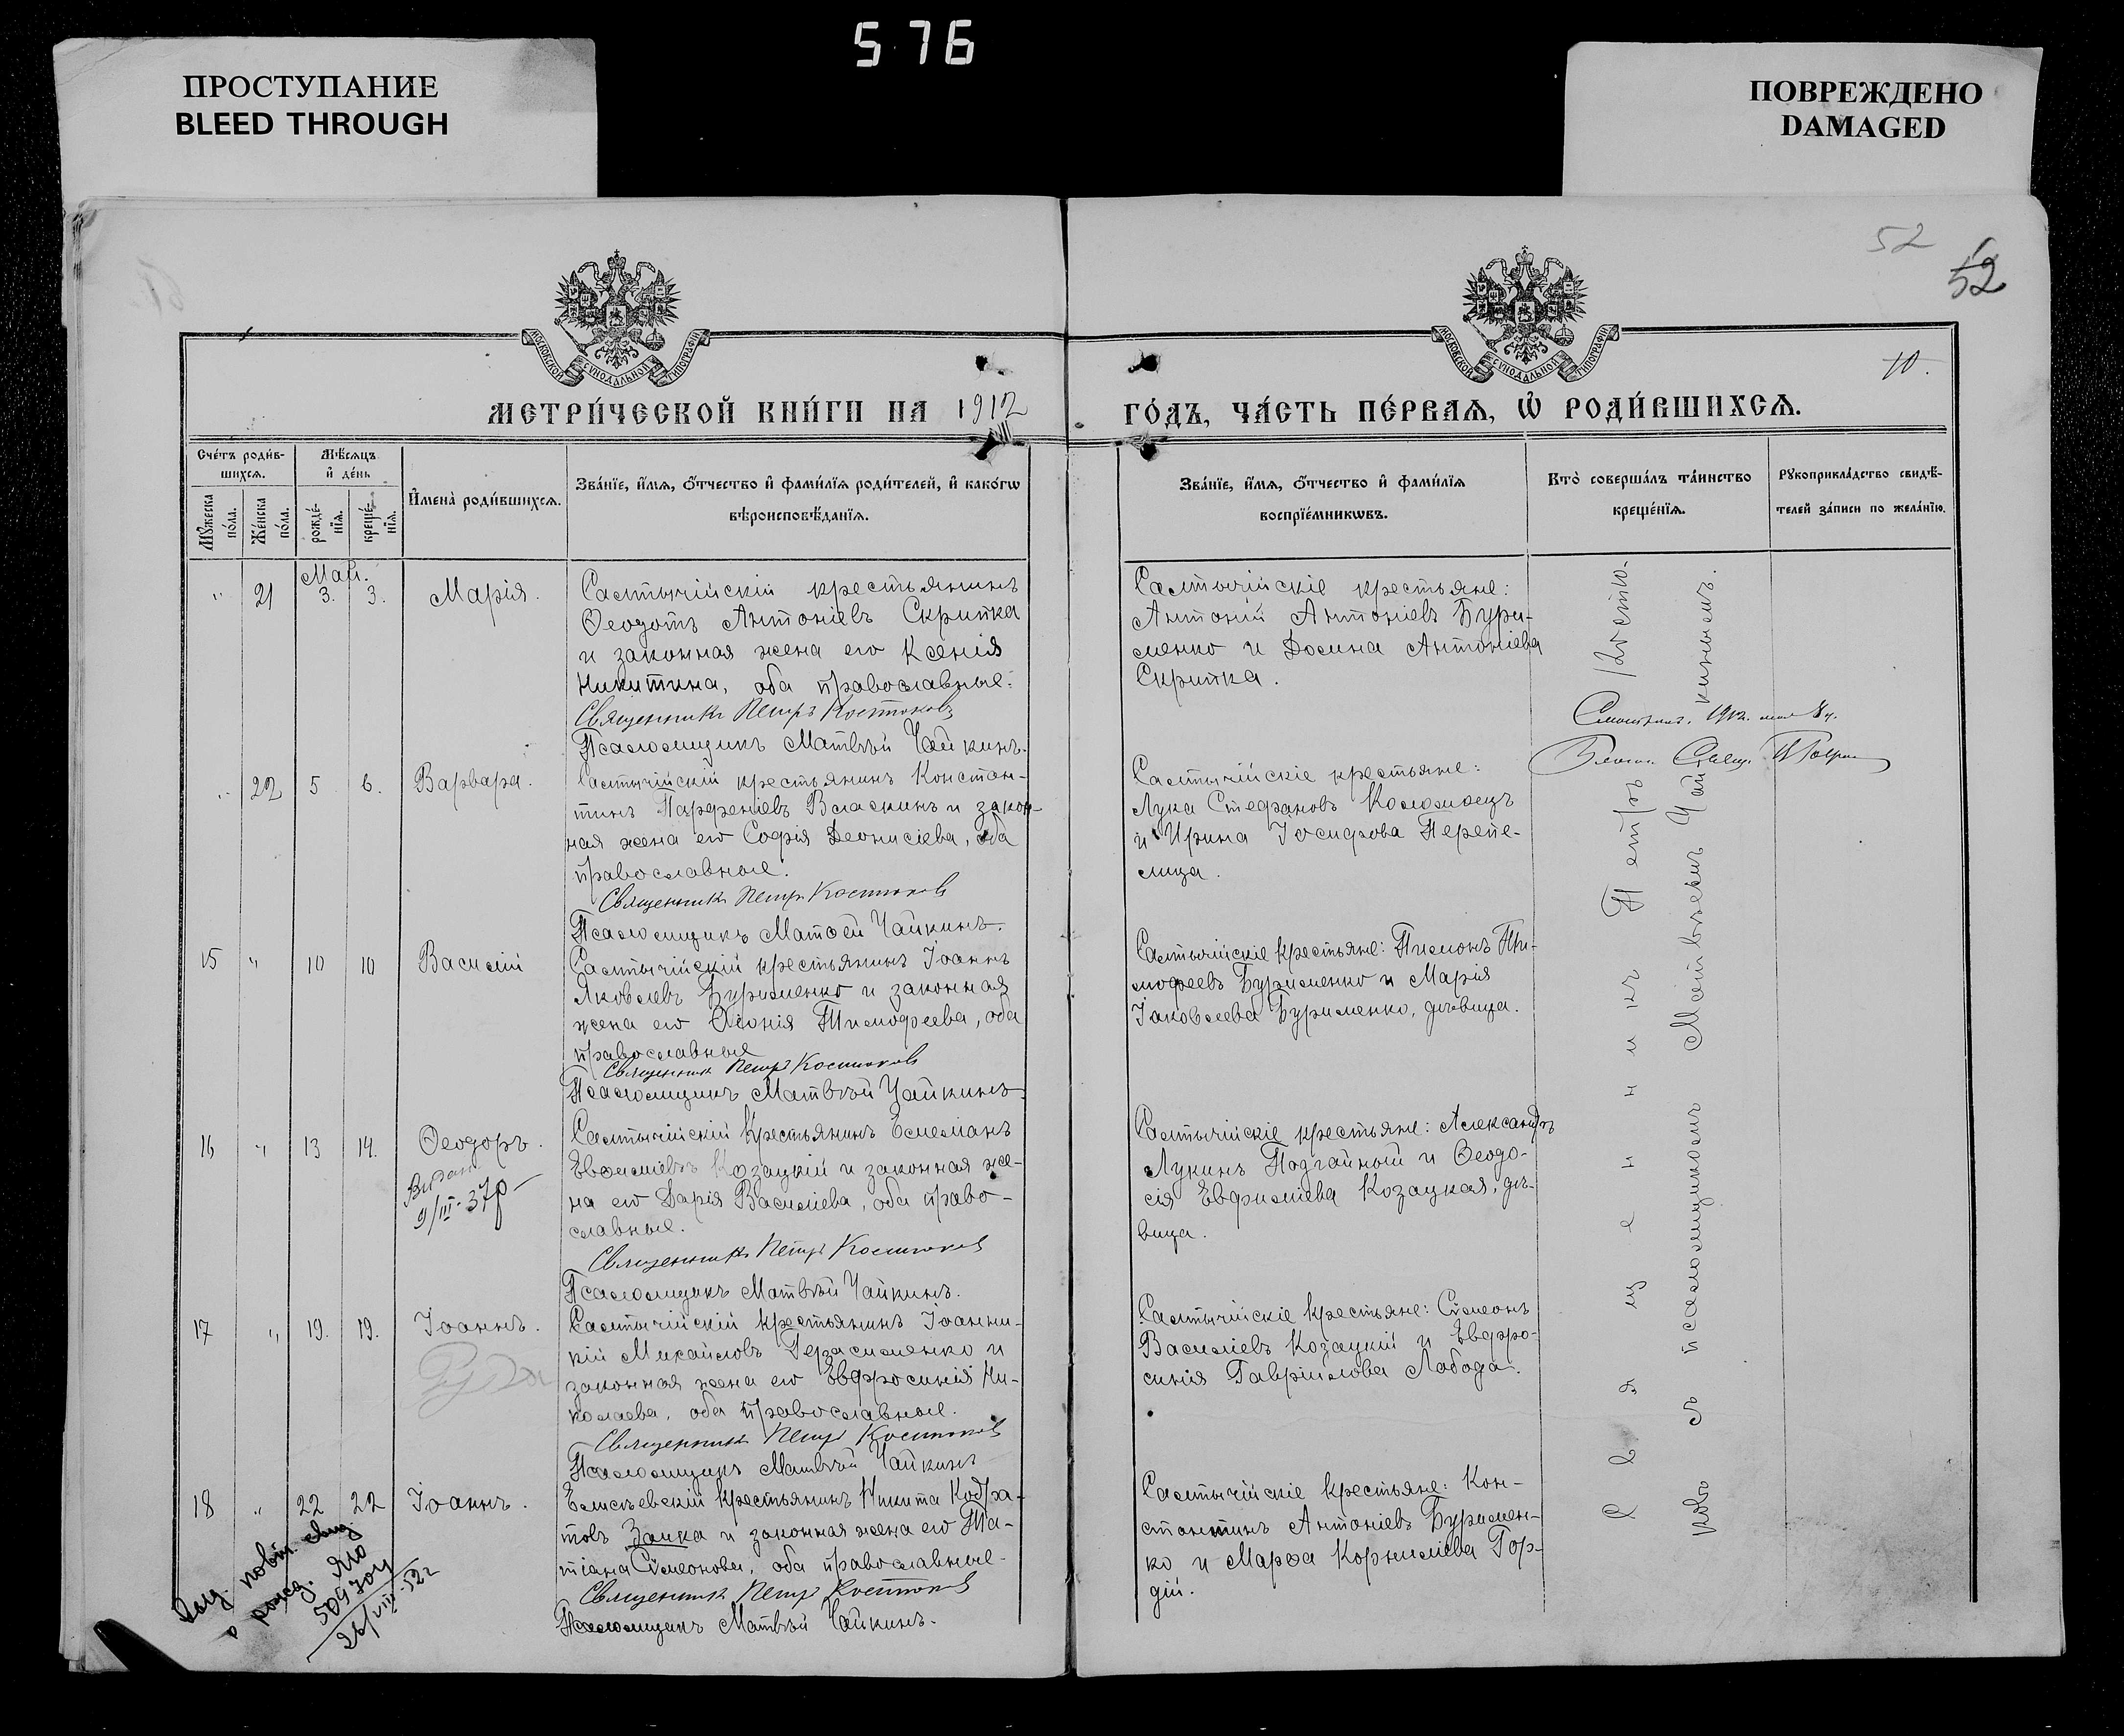 576
ПРОСТУПАНИЕ
BLEED THROUGH
ПОВРЕЖДЕНО
DAMAGED
52
52
МОСКОВСКОЙ СѴНОДАЛЬНОЙ ТИПОГРАФІИ
МОСКОВСКОЙ СѴНОДАЛЬНОЙ ТИПОГРАФІИ
10.
МЕТРИ́ЧЕСКОЙ КНИ́ГИ НА 1912
ГО́ДЪ, ЧА́СТЬ ПЕ́РВАѦ, Ѡ҆ РОДИ́ВШИХСѦ.
Сче́тъ роди́в-
шихсѧ.
Мѣ́сѧцъ
и҆ де́нь
Мꙋ́жеска
по́ла.
Же́нска
по́ла.
рожде́-
нїѧ.
креще́-
нїѧ.
И҆мена̀ роди́вшихсѧ.
Зва́нїе, и҆́мѧ, ѻ҆́тчество и҆ фами́лїѧ роди́телей, и҆ како́гѡ
вѣроисповѣ́данїѧ.
Зва́нїе, и҆́мѧ, ѻ҆́тчество и҆ фами́лїѧ
воспрїе́мникѡвъ.
Кто̀ соверша́лъ та́инство
креще́нїѧ.
Рꙋкоприкла́дство свидѣ́-
телей за́писи по жела́нїю.
Май.
" 21 3. 3. Марія.
Салтычійскій крестьянинъ
Ѳеодотъ Антоніевъ Скрипка
и законная жена его Ксенія
Никитина, оба православные.
Священникъ Петръ Костюковъ
Псаломщикъ Матвѣй Чайкинъ.
Салтычійскіе крестьяне:
Антоній Антоніевъ Бури-
менко и Домна Антоніева
Скрипка.
" 22 5 6. Варвара.
Салтычійскій крестьянинъ Констан-
тинъ Парфеніевъ Власкинъ и закон-
ная жена его Софія Деонисіева, оба
православные.
Священникъ Петръ Костюковъ
Псаломщикъ Матѳей Чайкинъ.
Салтычійскіе крестьяне:
Лука Стефановъ Коломоецъ
и Ирина Іосифова Перепе-
лица.
15 " 10 10 Василій
Салтычійскій крестьянинъ Іоаннъ
Яковлевъ Бурименко и законная
жена его Ѳеонія Тимофеева, оба
православные
Священникъ Петръ Костюковъ
Псаломщикъ Матвѣй Чайкинъ.
Салтычійскіе крестьяне: Пимонъ Ти-
мофеевъ Бурименко и Марія
Іаковлева Бурименко, дѣвица.
16 " 13 14. Ѳеодоръ.
9/III-37р
Салтычійскій крестьянинъ Емеліанъ
Евѳиміевъ Козацкій и законная же-
на его Дарія Василіева, оба право-
славные.
Священникъ Петръ Костюковъ
Псаломщикъ Матвѣй Чайкинъ.
Салтычійскіе крестьяне: Александръ
Лукинъ Подгайный и Ѳеодо-
сія Евфиміева Козацкая, дѣ-
вица.
17 " 19. 19. Іоаннъ.
Салтычійскій крестьянинъ Іоанни-
кій Михайловъ Герасименко и
законная жена его Евфросинія Ни-
колаева, оба православные.
Священникъ Петръ Костюковъ
Псаломщикъ Матвѣй Чайкинъ
Салтычійскіе крестьяне: Симеонъ
Василіевъ Козацкій и Евфро-
синія Гавріилова Лобода.
18 " 22 22 Іоаннъ.
Елисѣевскій крестьянинъ Никита Кодра-
товъ Заика и законная жена его Та-
тіана Сѵмеонова, оба православные.
Священникъ Петръ Костюковъ
Псаломщикъ Матвѣй Чайкинъ.
Салтычійскіе крестьяне: Кон-
стантинъ Антоніевъ Буримен-
ко и Марѳа Корниліева Гор-
дій.
повт. свид.
о рожд. ЯЮ
509704
26/VIII-52г
Священникъ Петръ Костю-
ковъ съ псаломщикомъ Матвѣемъ Чайкинымъ.
1912. мая 8 ч.